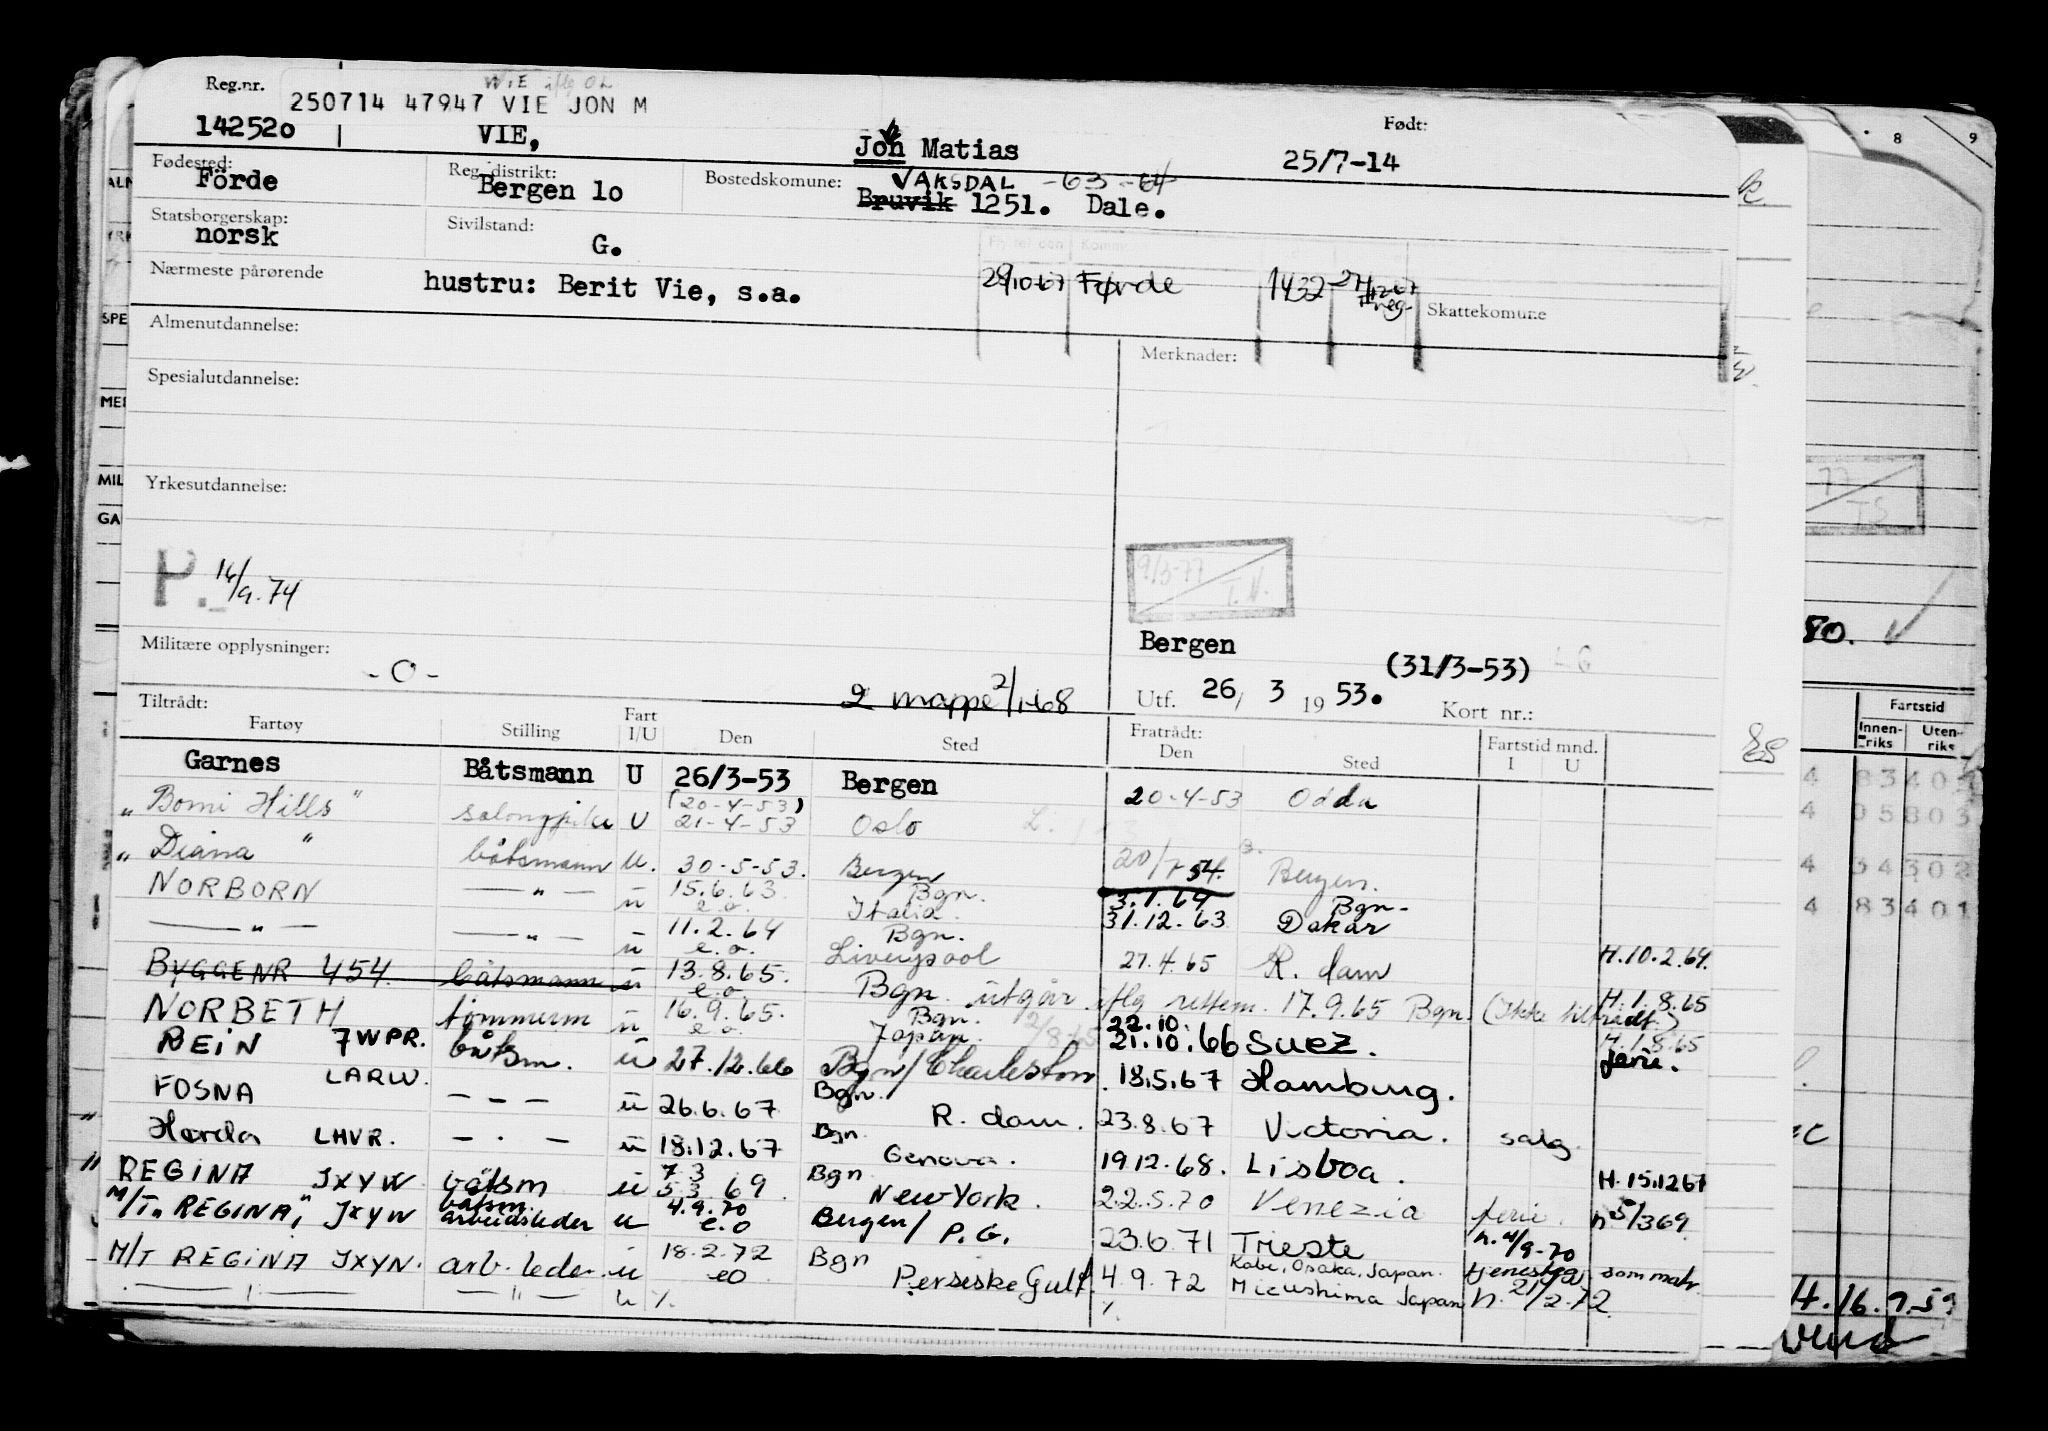 Reg.nr.
WIE iflg OL
250714 47947 VIE JON M
142520 VIE, Jon Matias
Født:
25/7-14
Fødested: Förde
Reg. distrikt: Bergen 1o
Bostedskomune: VAKSDAL -63-64
Bruvik 1251. Dale.
Statsborgerskap: norsk
Sivilstand: G.
Nærmeste pårørende hustru: Berit Vie, s.a.
Flyttet den Komm.
29/10-67 Førde 1432
freg.
Skattekomune
Almenutdannelse:
Merknader:
Spesialutdannelse:
Yrkesutdannelse:
P. 16/9.74
9/3-77 T.V.
Militære opplysninger:
-0-
2 mappe 2/1-68
Bergen
(31/3-53)
Utf. 26/ 3 1953.
Kort nr.:
Tiltrådt:
Fartøy Stilling Fart I/U Den Sted
Fratrådt: Den Sted Fartstid mnd. I U
Garnes Båtsmann U 26/3-53 Bergen 20-4-53 Odda
"Bomi Hills" salongpike U (20-4-53) 21-4-53 Oslo
"Diana" båtsmann u. 30-5-53. Bergen 20/7 54. Bergen.
NORBORN —"— u 15.6.63 e.o. Bgn. Italia. 3.1.64 31.12.63 Bgn- Dakar
—"— —"— u 11.2.64 e.o. Bgn. Liverpool 27.4.65 R.dam H.10.2.64.
BYGGENR 454. båtsmann u 13.8.65. e.o. Bgn. utgår iflg rettem. 17.9.65 Bgn. (Ikke tiltrådt.) H.1.8.65
NORBETH tømmerm u 16.9.65. e.o. Bgn. Japan. 2/8.65 22.10. 21.10.66 Suez. H.1.8.65
REIN 7WPR. båtsm. u 27.12.66 Bgn/Charleston. 18.5.67 Hamburg. ferie.
FOSNA LARW. — — — u 26.6.67 Bgn. R.dam. 23.8.67 Victoria. salg.
" Horda LHVR. — . — u 18.12.67 Bgn. Genova. 19.12.68. Lisboa. H.15.1267
" REGINA JXYW. båtsm u 7.3 5.3.69. Bgn New York. 22.5.70 Venezia ferie. h 5/369.
M/T "REGINA", JXYW båtsm. arbeidsleder u 4.9.70 e.o Bergen/ P.G. 23.6.71 Trieste h. 4/9-70
M/T REGINA JXYN. arb. leder u 18.2.72 eo Bgn Persiske Gulf. 4.9.72 Kobe, Osaka, Japan. Mizushima Japan tjenestg. som matr. h. 21/2-72
—"— —"— u % %
ALM
YRK
SPE
MED
MIL
GA
8 9
77
TS
80.
Fartstid
Innen-riks Uten-riks
4 83402
4 05803
4 54302
4 83401
H.16.9.59